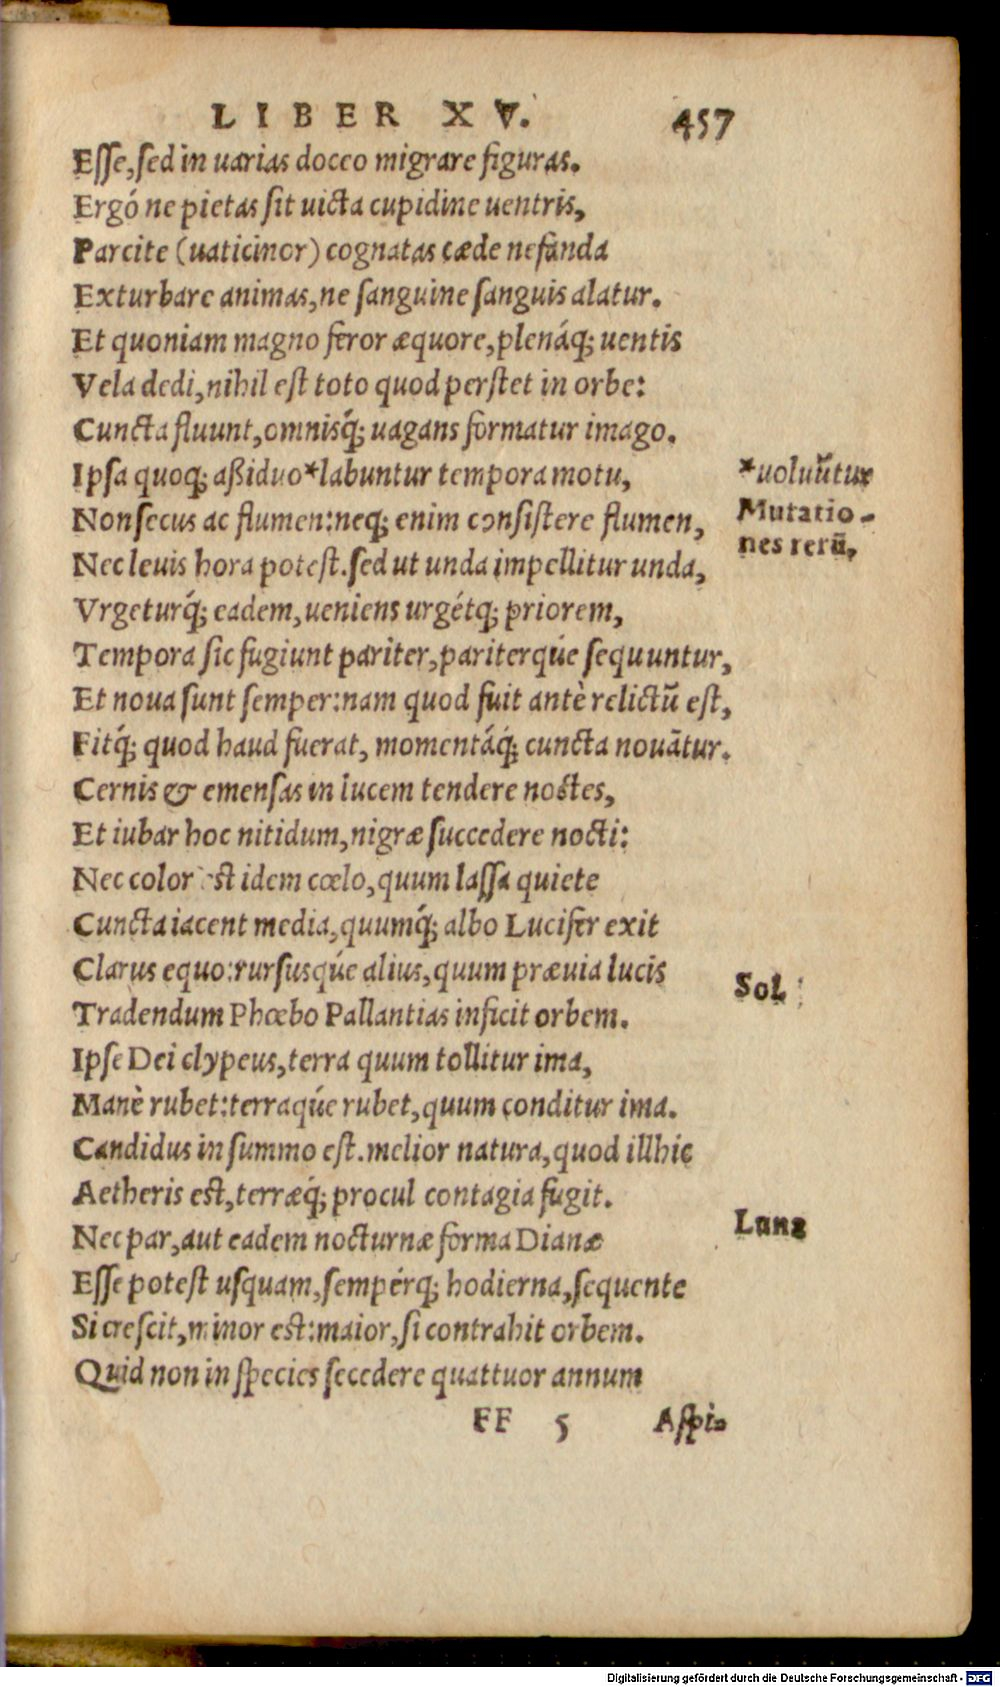 LIBER XV. 457
Esse, sed in uarias doceo migrare figuras.
Ergó ne pietas sit uicta cupidine uentris,
Parcite (uaticinor) cognatas cæde nefanda
Exturbare animas, ne sanguine sanguis alatur.
Et quoniam magno feror æquore, plenáq; uentis
Vela dedi, nihil est toto quod perstet in orbe:
Cuncta fluunt, omnisq́; uagans formatur imago.
Ipsa quoq; aßiduo*labuntur tempora motu,
*uoluũtur
Non secus ac flumen: neq; enim consistere flumen,
Mutatio-
Nec leuis hora potest. sed ut unda impellitur unda,
nes rerũ,
Vrgeturq́; eadem, ueniens urgétq; priorem,
Tempora sic fugiunt pariter, pariterqúe sequuntur,
Et noua sunt semper: nam quod fuit antè relictũ est,
Fitq́; quod haud fuerat, momentáq́; cuncta nouãtur.
Cernis & emensas in lucem tendere noctes,
Et iubar hoc nitidum, nigræ succedere nocti:
Nec color est idem cœlo, quum lassa quiete
Cuncta iacent media, quumq́; albo Lucifer exit
Clarus equo: rursusqúe alius, quum præuia lucis
Sol
Tradendum Phœbo Pallantias inficit orbem.
Ipse Dei clypeus, terra quum tollitur ima,
Manè rubet: terraqúe rubet, quum conditur ima.
Candidus in summo est. melior natura, quod illhic
Aetheris est, terræq́; procul contagia fugit.
Luna
Nec par, aut eadem nocturnæ forma Dianæ
Esse potest usquam, sempérq; hodierna, sequente
Si crescit, minor est: maior, si contrahit orbem.
Quid non in species secedere quattuor annum
FF 5 Aspi-
Digitalisierung gefördert durch die Deutsche Forschungsgemeinschaft - DFG